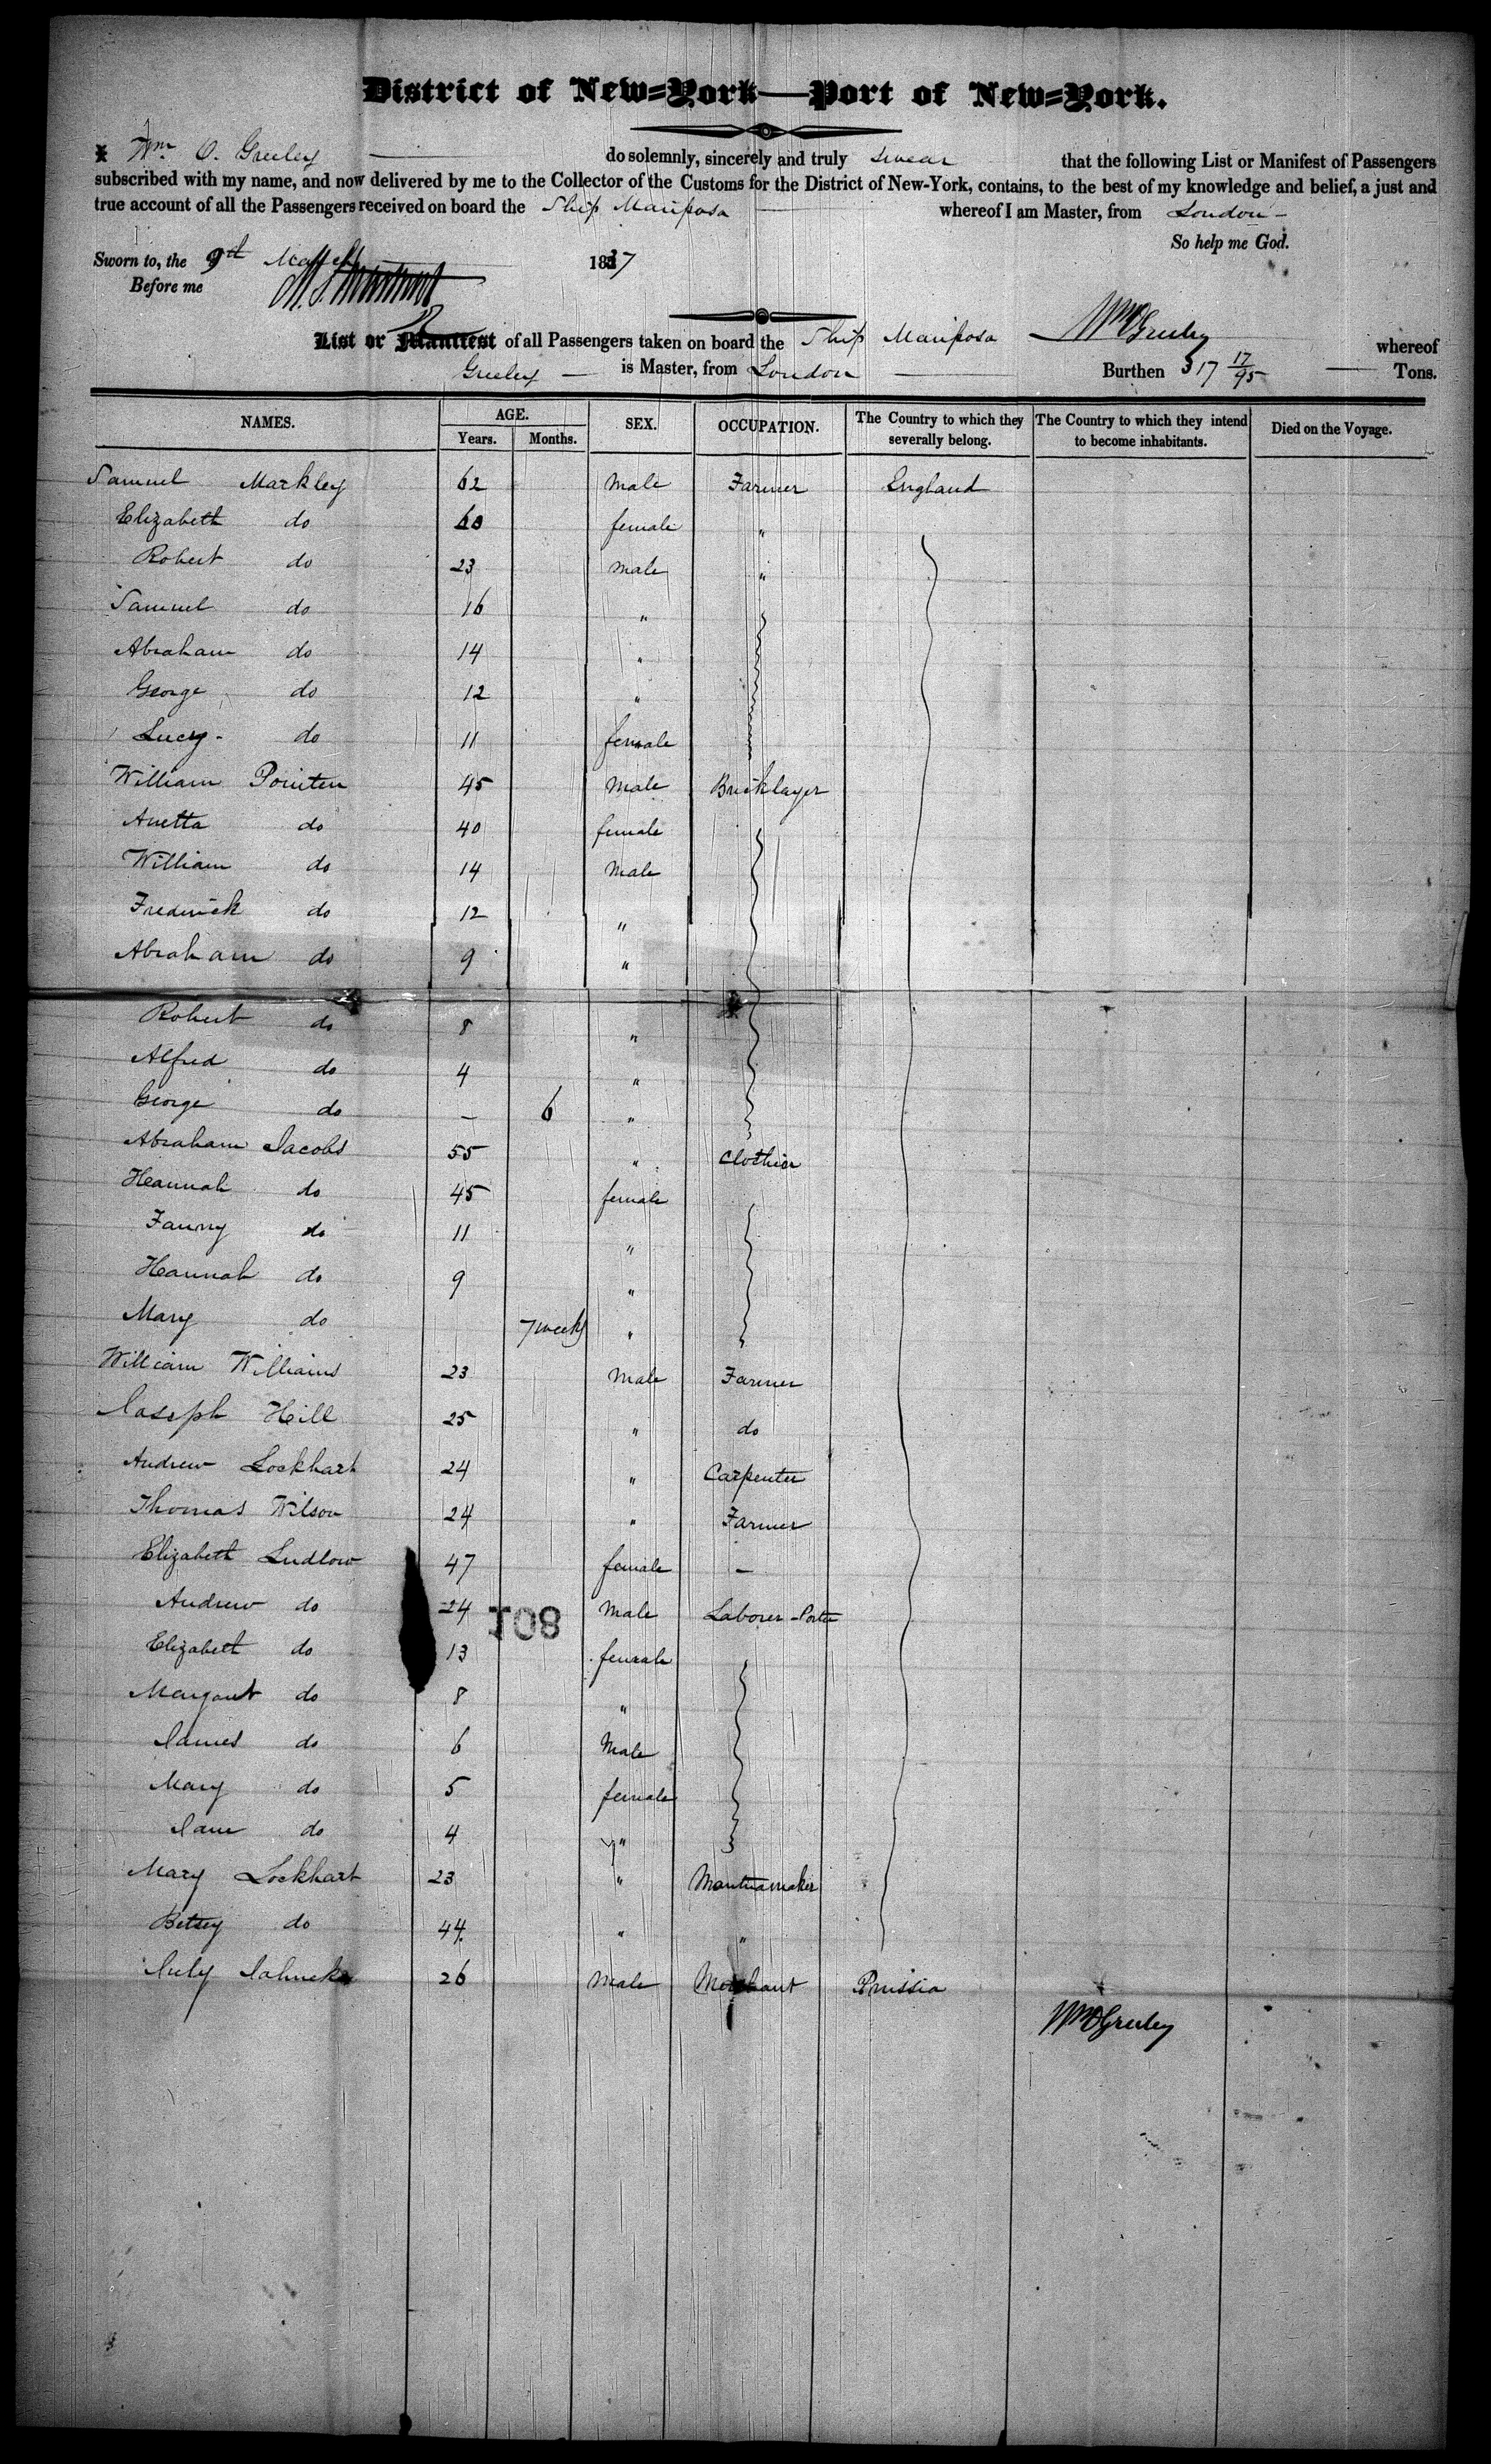 District of New=York—Port of New=York.
I Wm. O. Greeley do solemnly, sincerely and truly swear that the following List or Manifest of Passengers
subscribed with my name, and now delivered by me to the Collector of the Customs for the District of New-York, contains, to the best of my knowledge and belief, a just and
true account of all the Passengers received on board the Ship Mariposa whereof I am Master, from London
So help me God.
Sworn to, the 9th March 1837
Before me
Wm O Greeley
List or Manifest of all Passengers taken on board the Ship Mariposa whereof
Greeley is Master, from London Burthen 317 17/95 Tons.
NAMES. AGE. SEX. OCCUPATION. The Country to which they severally belong. The Country to which they intend to become inhabitants. Died on the Voyage.
Years. Months.
Samuel Markley 62 Male Farmer England
Elizabeth do 60 female "
Robert do 23 Male "
Samuel do 16 "
Abraham do 14 "
George do 12 "
Lucy do 11 female
William Pointen 45 Male Bricklayer
Anetta do 40 female
William do 14 Male
Frederick do 12 "
Abraham do 9 "
Robert do 8 "
Alfred do 4 "
George do — 6 "
Abraham Jacobs 55 " Clothier
Heannah do 45 female
Fanny do 11 "
Heannah do 9 "
Mary do 7 weeks "
William Williams 23 Male Farmer
Joseph Hill 25 " do
Andrew Lockhart 24 " Carpenter
Thomas Wilson 24 " Farmer
Elizabeth Ludlow 47 female —
Andrew do 24 Male Laborer - Porter
108
Elizabeth do 13 female
Margaret do 8 "
James do 6 Male
Mary do 5 female
Jane do 4 "
Mary Lockhart 23 " Mantuamaker
Betsey do 44 " "
July 26 Male Merchant Prussia
Wm O Greeley